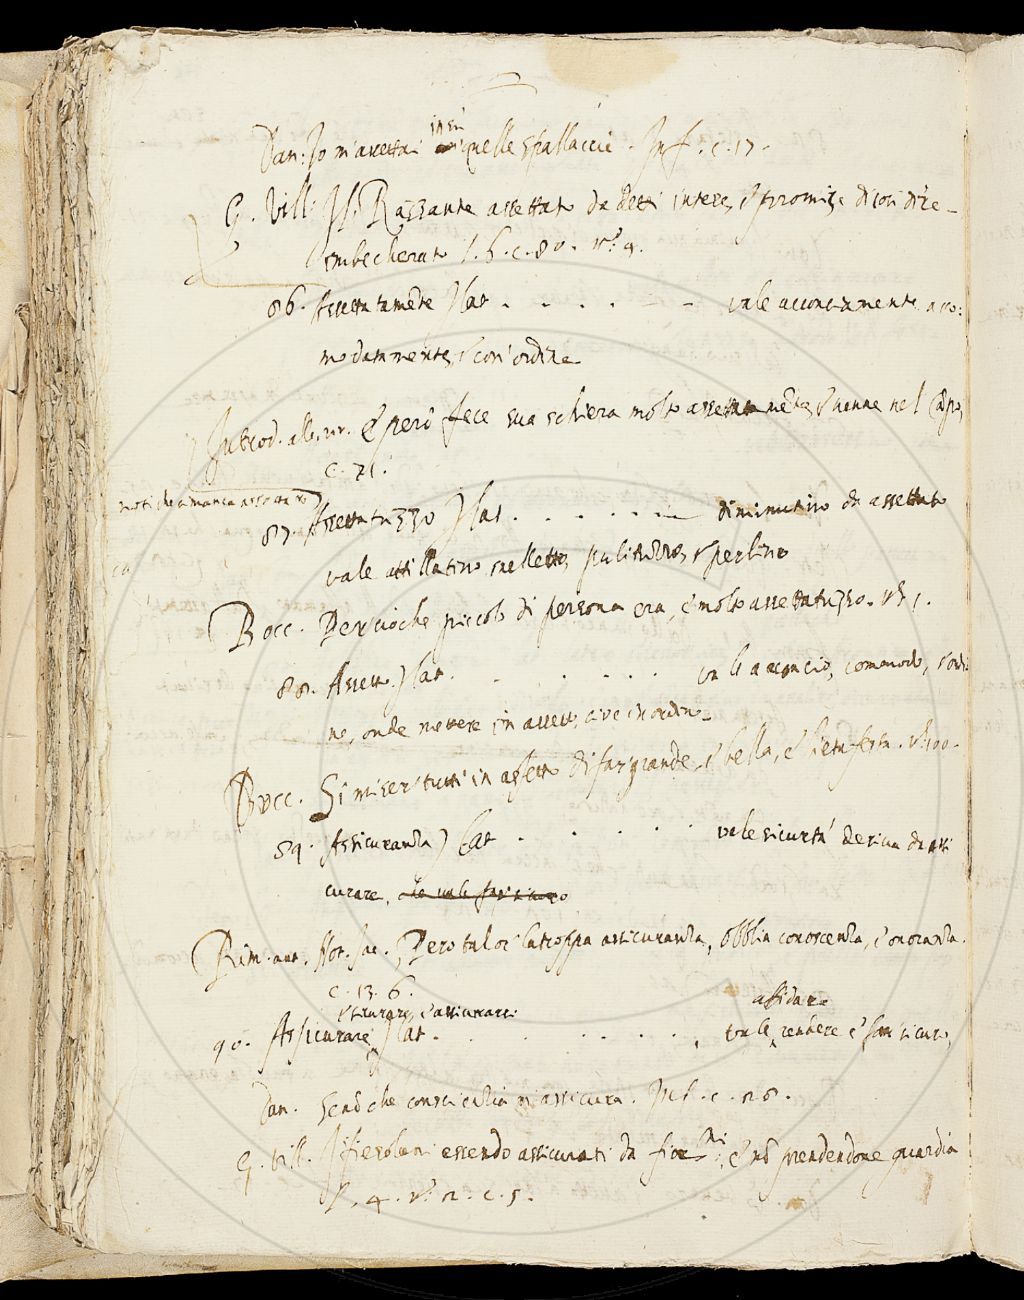 Dan: Io m'assettai in sù quelle spallaccie. Inf. c. 17.
G. Vill: Il Razzante assettato da detti interes, e promise di così dire
imbecherato l. 6. c. 80. n.º 4.
86. Assettatamẽte) lat . . . . . vale acconciamente, acco:
modatamente, e con ordine
e però fece sua schiera molto assettatamẽte, e venne nel cãpo,
c. 71.
noti che ci manca assettato
87. Assettatuzzo) lat . . . . . diminutivo da assettato
vale attillatino, snelletto, e perlino
Bocc. Percioche piccolo di persona era, e molto assettatuzzo.
88. Assetto) lat. . . . . . . vale acconcio, commodo, e ordi
ne, onde mettere in assetto, cioè in ordine
Bocc. Si miser tutti in assetto di far grande, e bella, e lieta festa.
89. Assicuranza) lat . . . . . vale sicurtà deriva da assi
curare,
Rim. ant. Però talor la troppa assicuranza, obblia conoscenza, e onoranza.
c. 13. 6.
e assicurarsi affidare
90. Assicurare) lat . . . . . . , vale, rendere e far sicuro,
Dan. Se nõ che conscienzia m'assicura. Inf. c. 28.
G. Vill. I fiesolani essendo assicurati da fior.ni, e nõ prendendone guardia
l. 4. n.º c. 5.